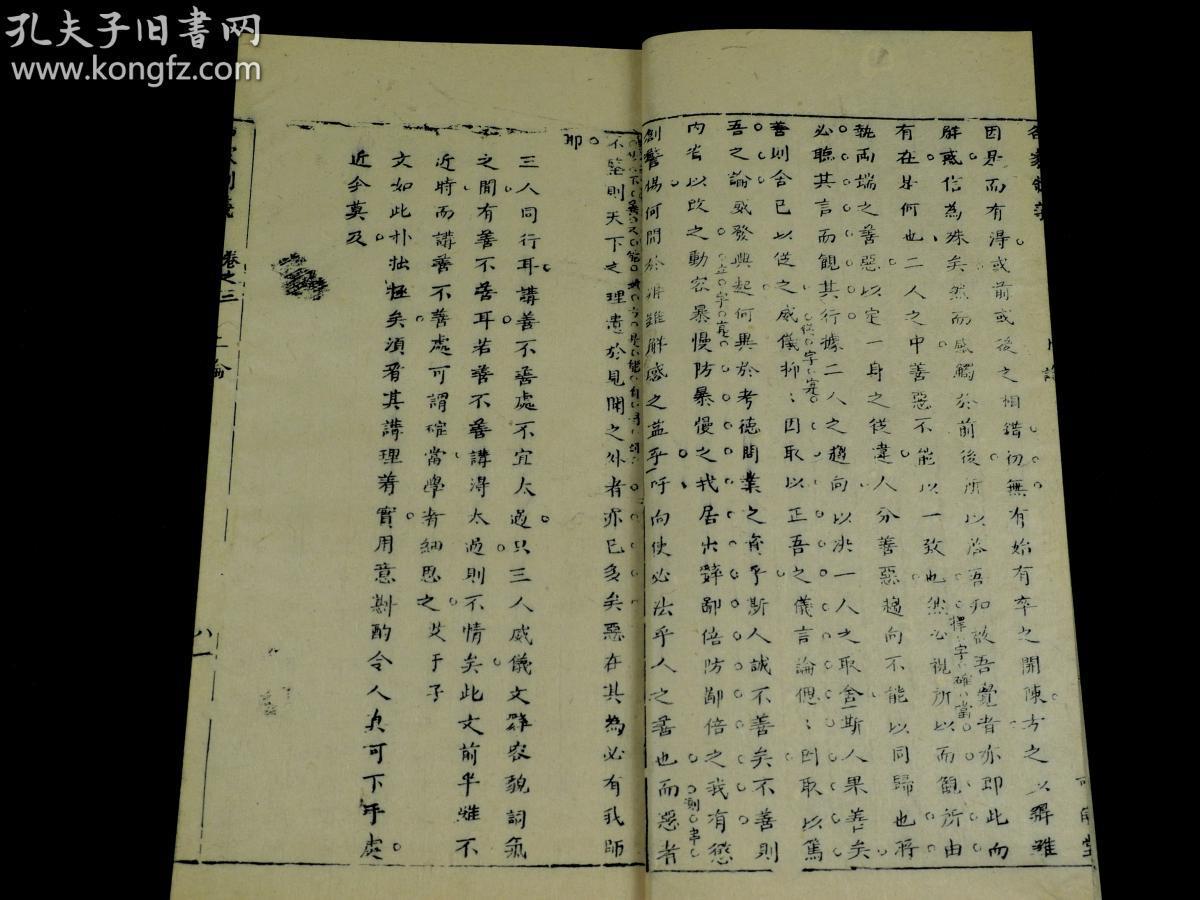 孔夫子旧书网
www.kongfz.com
因是而有得或前或後之相錯初無有始有卒之開陳方之以辭雖
辟或信為殊矣然而感觸於前後所以啟吾知啟吾覺者亦即此而
有在是何也二人之中善惡不能以一致也然必視所以而觀所由
擇字確當
執兩端之善惡以定一身之從違人分善惡趨向不能以同歸也將
必聽其言而觀其行據二人之趨向以決一人之取舍斯人果善矣
從字定
善則舍己以從之威儀抑抑因取以正吾之儀言論偲偲因取以篤
吾之論感發興起何異於考德問業之資乎斯人誠不善矣不善則
內省以改之動容暴慢防暴慢之我居出辭鄙倍防鄙倍之我有慾
創警惕何間於辨難解惑之益乎吁向使必法乎人之善也而惡者
不鑒則天下之理遺於見聞之外者亦已多矣惡在其為必有我師
耶
三人同行耳講善不善處不宜太過只三人威儀文辭容貌詞氣
之間有善不善耳若善不善講得太過則不情矣此文前半雖不
近時而講善不善處可謂確當學者細思之艾千子
文如此朴拙極矣須看其講理著實用意斟酌令人真可下手處
近今莫及
卷之三
二論
八一